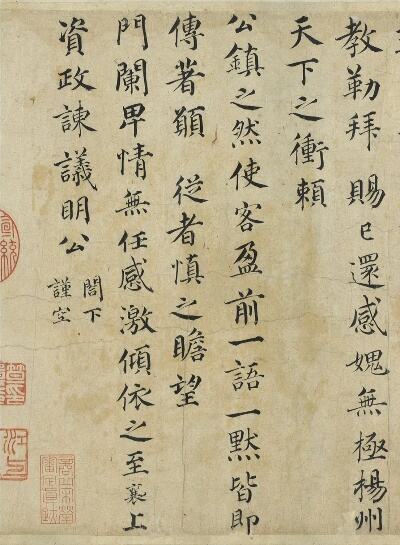 教勒拜 賜已還感媿無極楊州
天下之衝頼
公鎮之然使客盈前一語一黙皆即
傳著願 從者慎之瞻望
門闌卑情無任感激傾依之至襄上
資政諫議明公
閤下
謹空